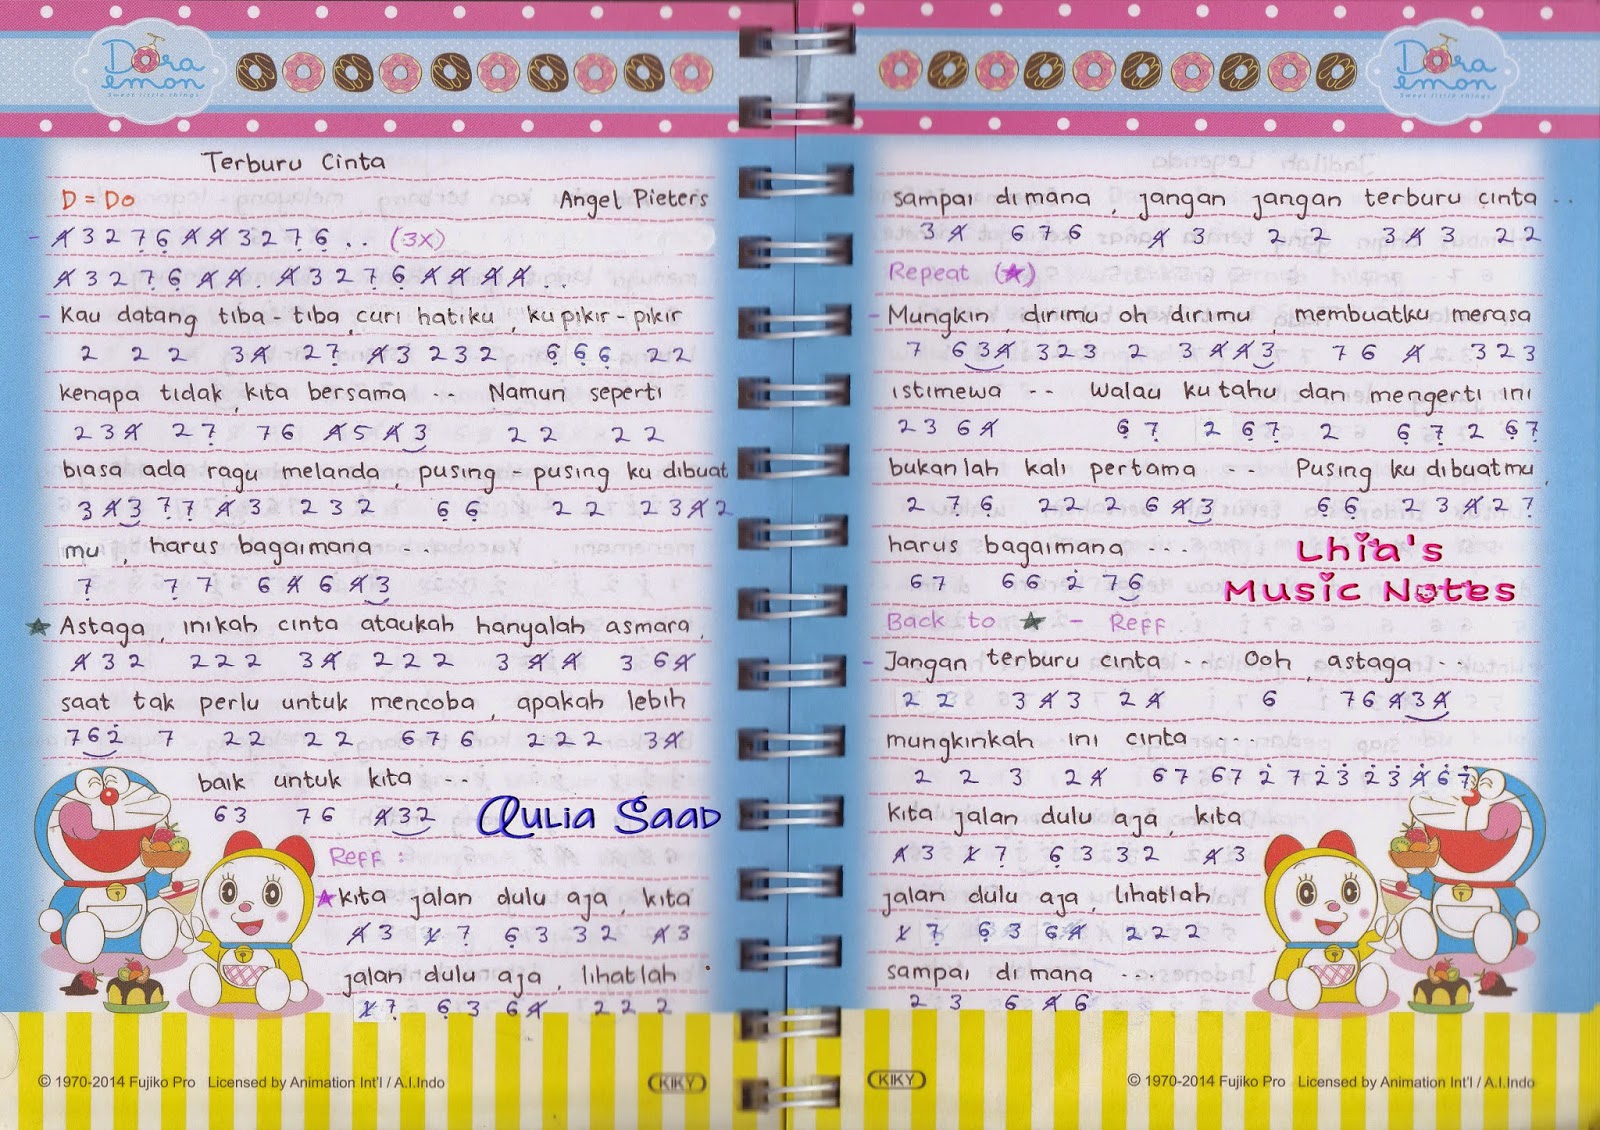 Dora
emon
Sweet little things
Terburu Cinta
D = Do
Angel Pieters
- 4̸ 3 2 7̣ 6̣ 4̸ 4̸ 3 2 7̣ 6̣ . . (3X)
4̸ 3 2 7̣ 6̣ 4̸ 4̸ . 4̸ 3 2 7̣ 6̣ 4̸ 4̸ 4̸ 4̸ . .
- Kau datang tiba - tiba, curi hatiku, ku pikir - pikir
2 2 2 3 4̸ 2 7̣ 4̸ 3 2 3 2 6̣ 6̣ 6̣ 2 2
kenapa tidak, kita bersama -- Namun seperti
2 3 4̸ 2 7̣ 7 6 4̸ 5 4̸ 3 2 2 2 2
biasa ada ragu melanda, pusing - pusing ku dibuat
3 4̸ 3 7̣ 7̣ 4̸ 3 2 3 2 6̣ 6̣ 2 2 2 3 4̸ 2
mu, harus bagaimana ...
7̣ 7̣ 7 6 4̸ 6 4̸ 3
★ Astaga, inikah cinta ataukah hanyalah asmara,
4̸ 3 2 2 2 2 3 4̸ 2 2 2 3 4̸ 4̸ 3 6 4̸
saat tak perlu untuk mencoba, apakah lebih
7 6 2̇ 7 2 2 2 2 6 7 6 2 2 2 3 4̸
baik untuk kita --
6 3 7 6 4̸ 3 2
Aulia Saad
Reff :
★ kita jalan dulu aja, kita
4̸ 3 1̸ 7̣ 6̣ 3 3 2 4̸ 3
jalan dulu aja, lihatlah
1̸ 7̣ 6̣ 3 6 4̸ 2 2 2
© 1970-2014 Fujiko Pro Licensed by Animation Int'l / A.I.Indo
KIKY
Dora
emon
Sweet little things
sampai di mana, jangan jangan terburu cinta ..
3 4̸ 6 7 6 4̸ 3 2 2 3 4̸ 3 2 2
Repeat (★)
- Mungkin, dirimu oh dirimu, membuatku merasa
7 6 3 4̸ 3 2 3 2 3 4̸ 4̸ 3 7 6 4̸ 3 2 3
istimewa -- walau ku tahu dan mengerti ini
2 3 6 4̸ 6̣ 7̣ 2 6̣ 7̣ 2 6̣ 7̣ 2 6̣ 7̣
bukanlah kali pertama -- Pusing ku dibuatmu
2 7̣ 6̣ 2 2 2 2 6 4̸ 3 6̣ 6̣ 2 3 4̸ 2 7̣
harus bagaimana ...
6 7 6 6 2̇ 7 6
Lhia's
Music Notes
Back to ★ - Reff
- Jangan terburu cinta -- Ooh, astaga --
2 2 3 4̸ 3 2 4̸ 6 7 6 4̸ 3 4̸
mungkinkah ini cinta ...
2 2 3 2 4̸ 6 7 6 7 2̇ 7 2̇ 3̇ 2̇ 3̇ 4̸̇ 6 7
kita jalan dulu aja, kita
4̸ 3 1̸ 7̣ 6̣ 3 3 2 4̸ 3
jalan dulu aja, lihatlah
1̸ 7̣ 6̣ 3 6 4̸ 2 2 2
sampai di mana --
2 3 6 4̸ 6
KIKY
© 1970-2014 Fujiko Pro Licensed by Animation Int'l / A.I.Indo